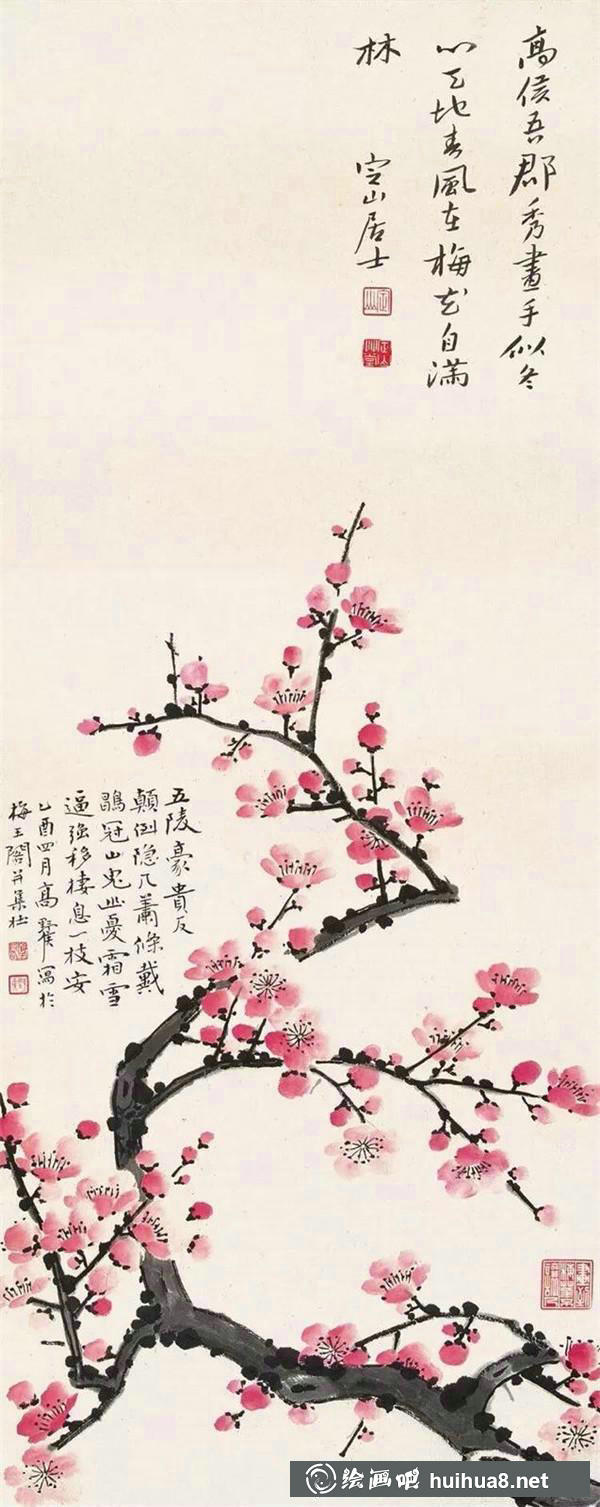 高侯吾郡秀畫手似冬
心天地春風在梅花自滿
林
定山居士
五陵豪貴反
顛倒隐几蕭條戴
鶡冠山鬼幽憂霜雪
逼強移棲息一枝安
乙酉四月高野侯寫於
梅王閣并集杜
绘画吧 huihua8.net